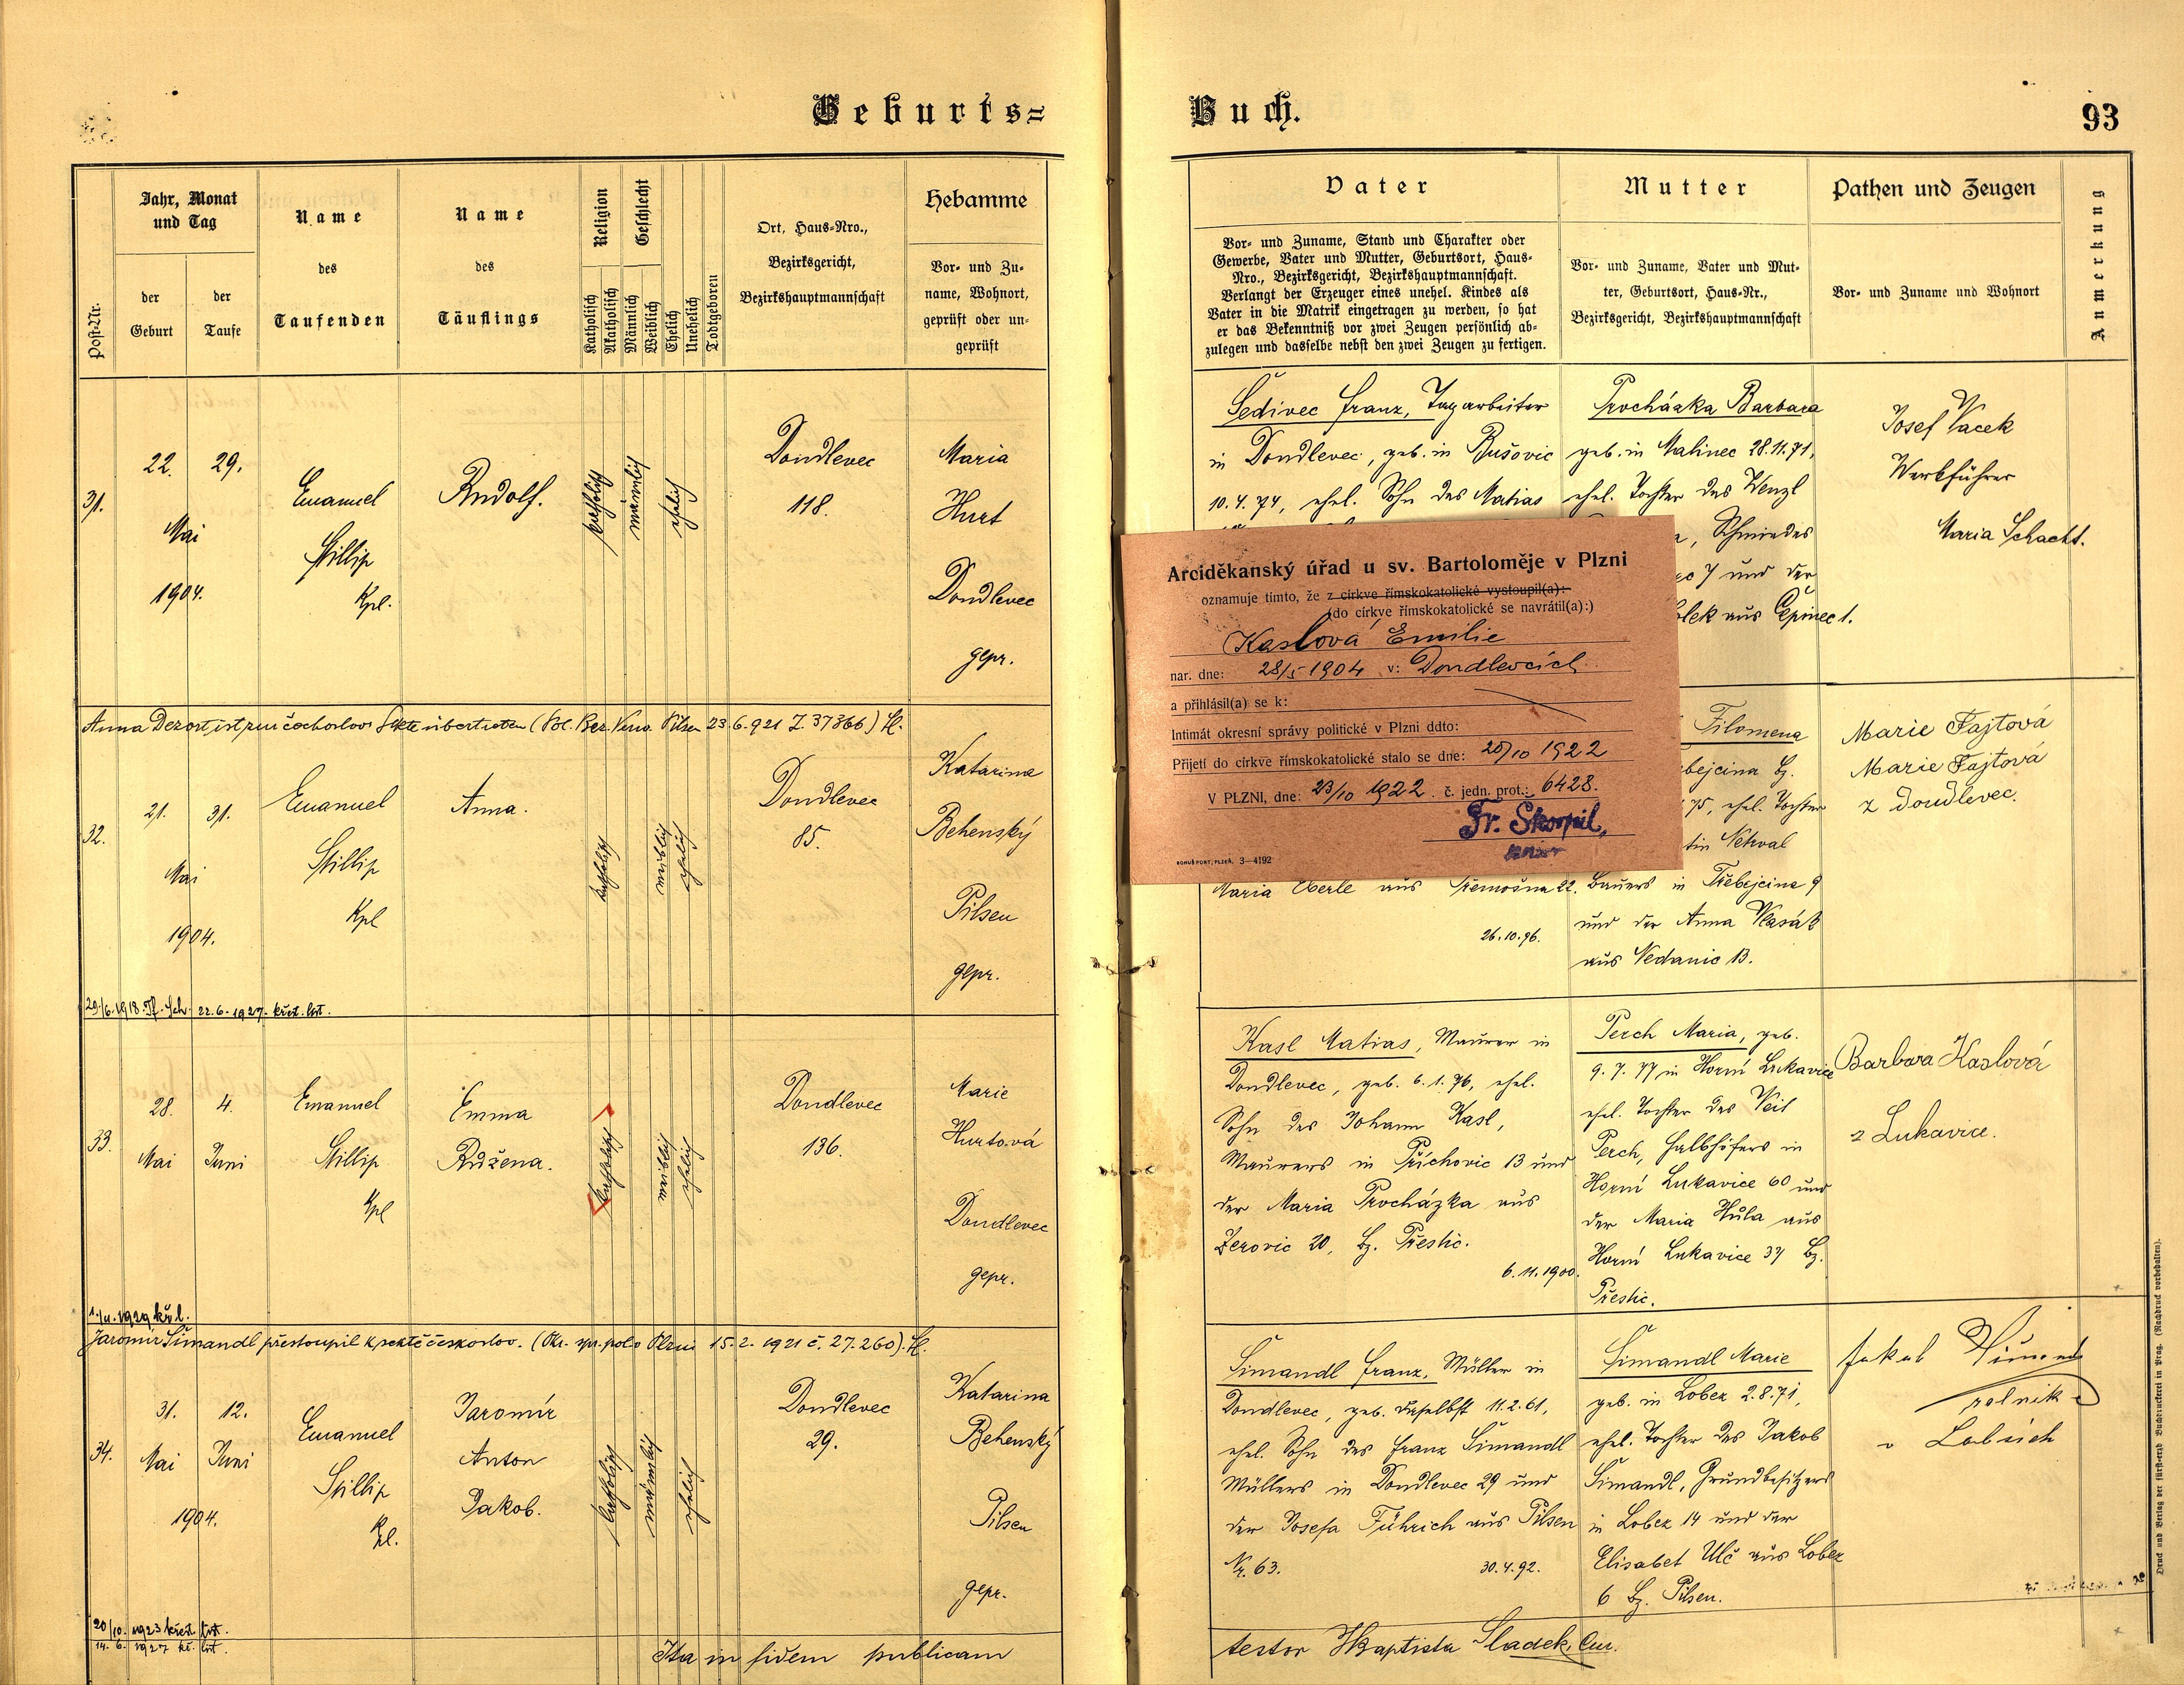 Geburts=
Buch.
93
Post-Nr.
Jahr, Monat
und Tag
der
Geburt
der
Taufe
Name
des
Taufenden
Name
des
Täuflings
Religion
Katholisch
Akatholisch
Geschlecht
Männlich
Weiblich
Ehelich
Unehelich
Todtgeboren
Ort, Haus-Nro.,
Bezirksgericht,
Bezirkshauptmannschaft
Hebamme
Vor- und Zu-
name, Wohnort,
geprüft oder un-
geprüft
Vater
Vor- und Zuname, Stand und Charakter oder
Gewerbe, Vater und Mutter, Geburtsort, Haus-
Nro., Bezirksgericht, Bezirkshauptmannschaft.
Verlangt der Erzeuger eines unehel. Kindes als
Vater in die Matrik eingetragen zu werden, so hat
er das Bekenntniß vor zwei Zeugen persönlich ab-
zulegen und dasselbe nebst den zwei Zeugen zu fertigen.
Mutter
Vor- und Zuname, Vater und Mut-
ter, Geburtsort, Haus-Nr.,
Bezirksgericht, Bezirkshauptmannschaft
Pathen und Zeugen
Vor- und Zuname und Wohnort
Anmerkung
31.
22. 29.
Mai
1904.
Emanuel
Stillip
Kpl.
Rudolf.
katholisch
männlich
ehelich
Doudlevec
118.
Maria
Hurt
Doudlevec
gepr.
Šedivec Franz, Tagarbeiter
in Doudlevec, geb. in Bušovic
10.4.74, ehel. Sohn des Matias
Procházka Barbara
geb. in Malinec 28.11.71,
ehel. Tochter des Wenzl
Schmiedes
7 und der
aus Čepinec 1.
Josef Vacek
Werkführer
Maria Schacht.
Arciděkanský úřad u sv. Bartoloměje v Plzni
oznamuje tímto, že z církve římskokatolické vystoupil(a):
(do církve římskokatolické se navrátil(a):)
Kaslová Emilie
nar. dne: 28/5 1904 v: Doudlevcích
a přihlásil(a) se k:
Intimát okresní správy politické v Plzni ddto:
Přijetí do církve římskokatolické stalo se dne: 20/10 1922
V PLZNI, dne: 23/10 1922. č. jedn. prot.: 6428.
Fr. Škorpil,
BOHUŠ PORT, PLZEŇ. 3—4192
Anna Dezort ist zur čechoslov. Sekte übertreten (Pol. Bez. Verw. Pilsen 23.6.921 Z. 37366)
32.
21. 31.
Mai
1904.
Emanuel
Stillip
Kpl
Anna.
katholisch
weiblich
ehelich
Doudlevec
85.
Katarina
Behenský
Pilsen
gepr.
Maria Eberle aus Třemošna 22.
26.10.96.
Filomena
75, ehel. Tochter
Bauers in Třebejcina 9
und der Anna Vlasák
aus Nedanic 13.
Marie Fajtová
Marie Fajtová
z Doudlevec.
29/6.1918. Tf. Sch. 22.6.1927. křest. list.
33.
28. 4.
Mai Juni
Emanuel
Stillip
Kpl
Emma
Růžena.
katholisch
weiblich
ehelich
Doudlevec
136.
Marie
Hurtová
Doudlevec
gepr.
Kasl Matias, Maurer in
Doudlevec, geb. 6.1.76, ehel.
Sohn des Johann Kasl,
Maurers in Příchovic 13 und
der Maria Procházka aus
Zerovic 20, Bz. Přestic.
6.11.1900.
Perch Maria, geb.
9.7.77 in Horní Lukavice
ehel. Tochter des Veit
Perch, Halbhöfers in
Horní Lukavice 60 und
der Maria Hůla aus
Horní Lukavice 37 Bz.
Přestic.
Barbora Kaslová
z Lukavice.
Jaromír Šimandl přestoupil k sektě českoslov. (Okr. spr. pol. v Plzni 15.2.1921 č. 27.260).
34.
31. 12.
Mai Juni
1904.
Emanuel
Stillip
Kpl.
Jaromír
Anton
Jakob.
katholisch
männlich
ehelich
Doudlevec
29.
Katarina
Behenský
Pilsen
gepr.
Šimandl Franz, Müller in
Doudlevec, geb. daselbst 11.2.61,
ehel. Sohn des Franz Šimandl
Müllers in Doudlevec 29 und
der Josefa Führich aus Pilsen
Nr. 63. 30.4.92.
Šimandl Marie
geb. in Lobez 2.8.71,
ehel. Tochter des Jakob
Šimandl, Grundbesitzers
in Lobez 14 und der
Elisabet Ulč aus Lobez
6 Bz. Pilsen.
rolnik
v Lobzích
20/10. 1923 křest. list.
14. 6. 1927 kř. list.
Ita in fidem publicam
testor Sladek, Cur.
Druck und Verlag der fürst-erzb. Buchdruckerei in Prag. (Nachdruck vorbehalten).